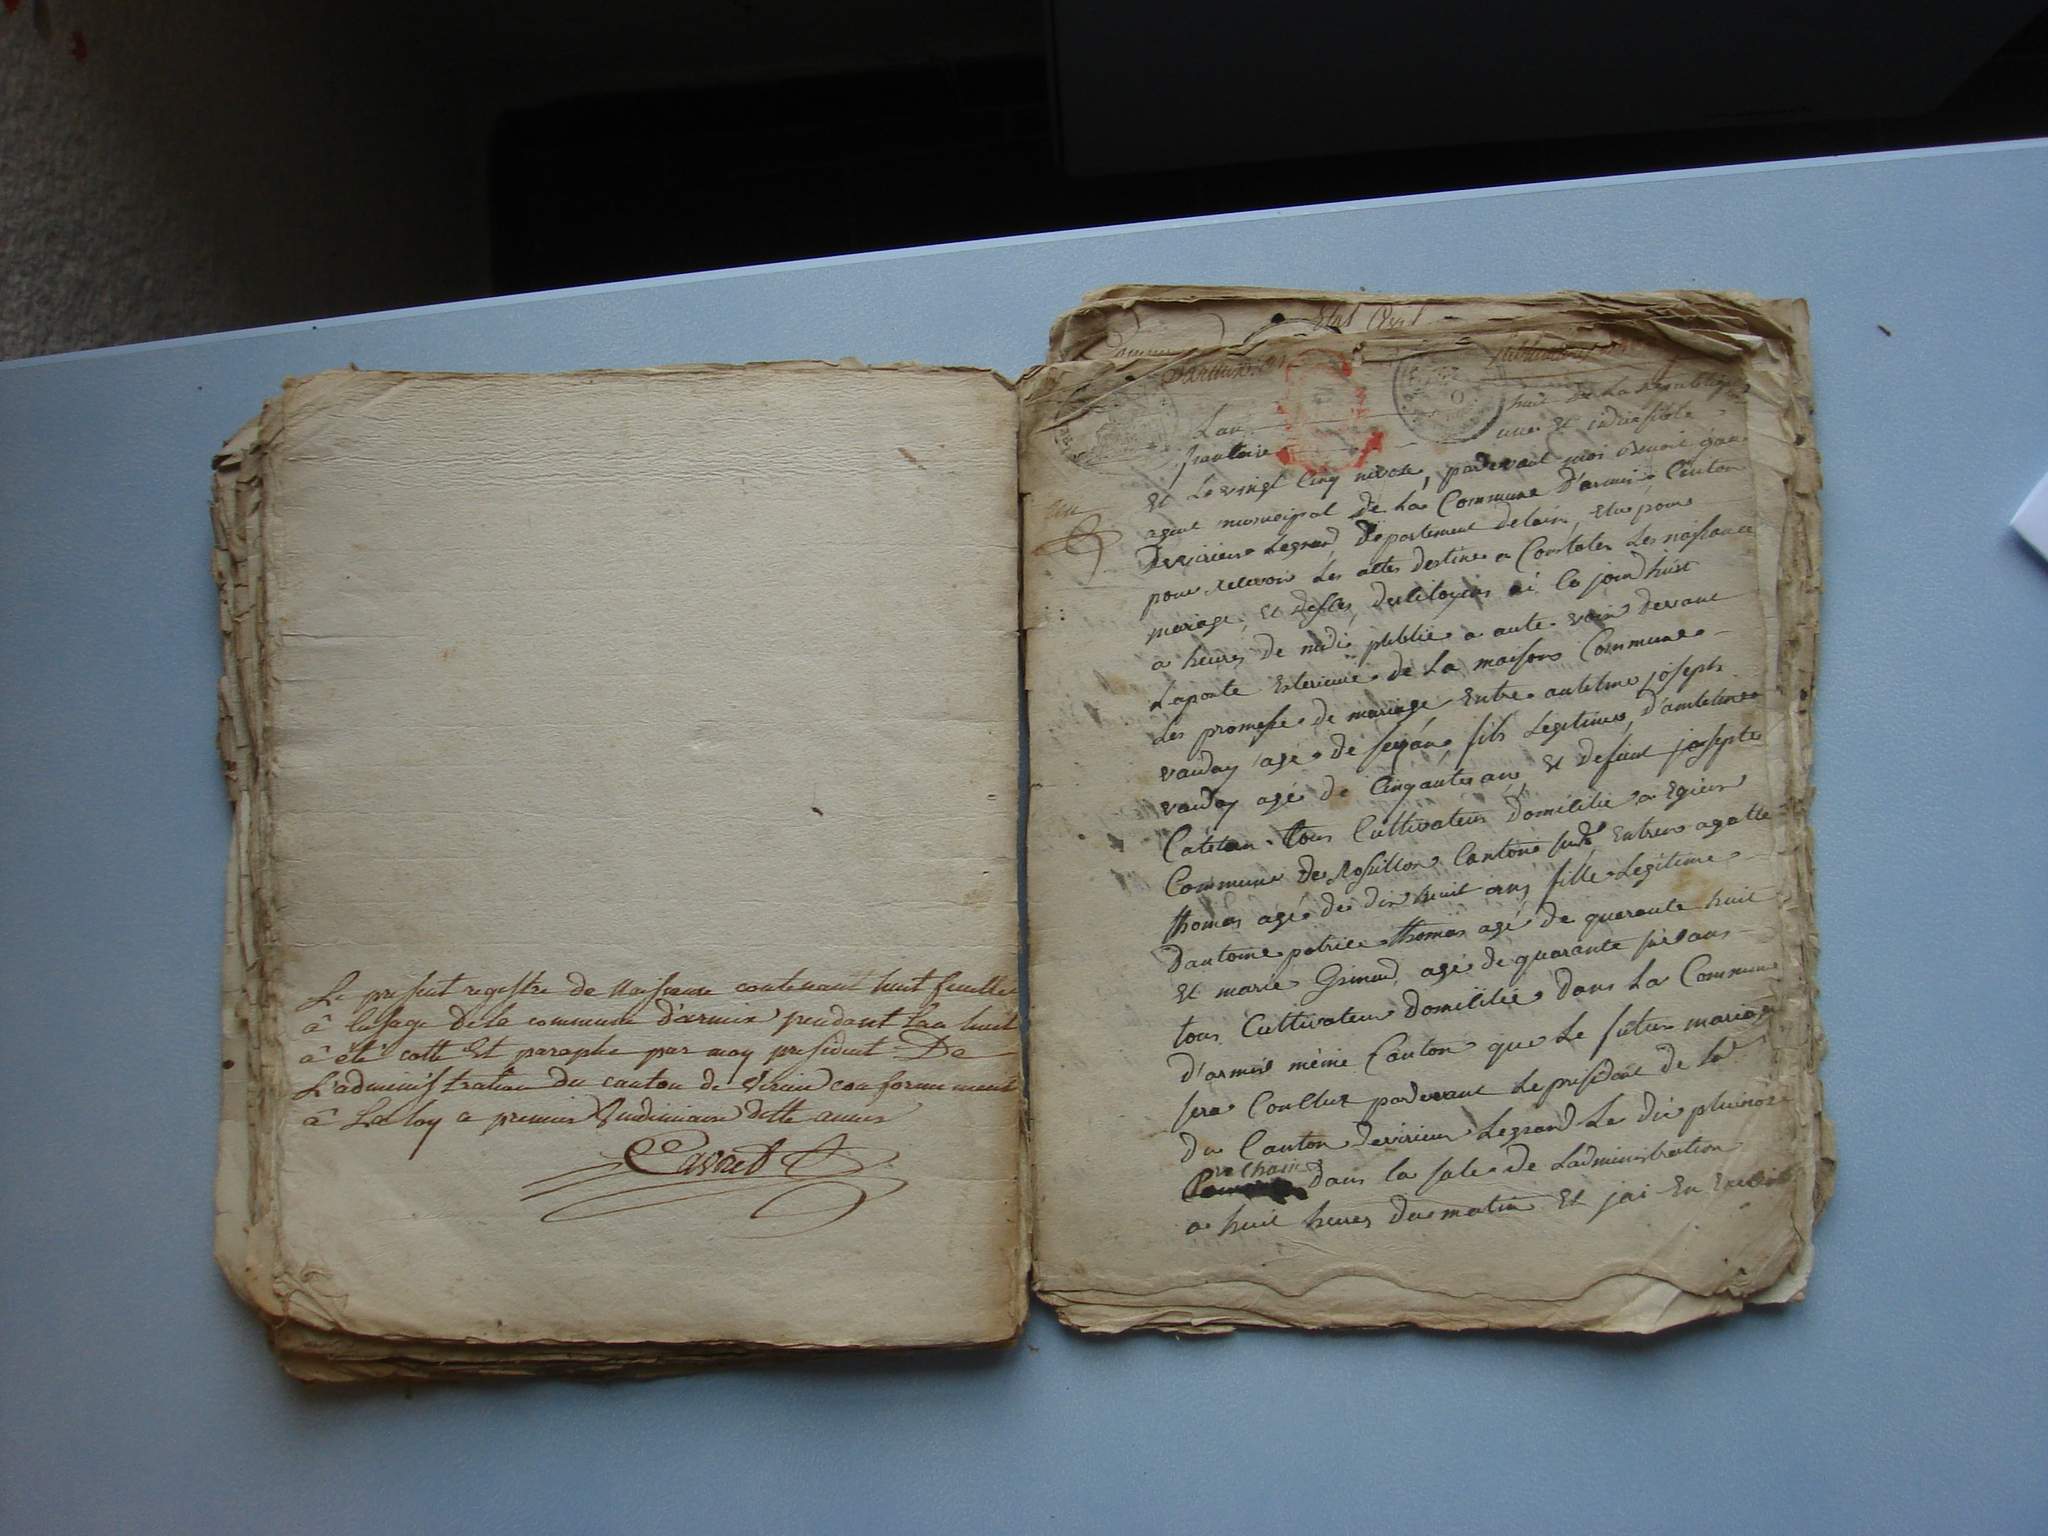 Le present registre de Naissance contenant huit feuillets
â lusage dela commune d'armix pendant Lan huit
â été cotté Et paraphé par moy president De
L'administration du canton de Virieu conformement
â La loy a premier Vendimiaire ditte année
Etat Civil
Lan huit de La republique
francaise une et indivisible
un
Et Le vingt Cinq nivose, pardevant moi Benoit
agent municipal de La Commune D'armix Canton
De virieu Legrand, Département delain, Elu pour
pour recevoir Les actes destine a Constater Les naissance
mariage, Et déces, des citoyens ai Ce jourdhuit
a heures de midi publié a aute voix devant
Laporte Exterieure de La maison Commune
Les promesse de mariage Entre antelme joseph
vauday agé de ans, fils Legitime, D'antelme
vauday agé de Cinqante ans, Et defunt josepte
Catelan tous Cultivateur Domicilié a Egieu
Commune de Rosillon Cantone sudt Entreu agatte
thomas agé de dix huit ans fille Legitime
D'antoine patrice thomas agé de quarante huit
Et marie Grimod, agé de quarante six ans
tous Cultivateur Domicilié Dans La Commune
d'armix même Canton que Le futur mariage
sera Conclut pardevant Le présidant de La
du Canton devirieu Legrand Le dix pluviose
prochain Dans la sale de Ladministration
a huit heures du matin Et jai En Execution